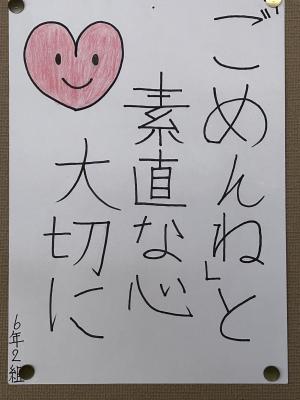 ごめんね」と
素直な心
大切に
6年2組